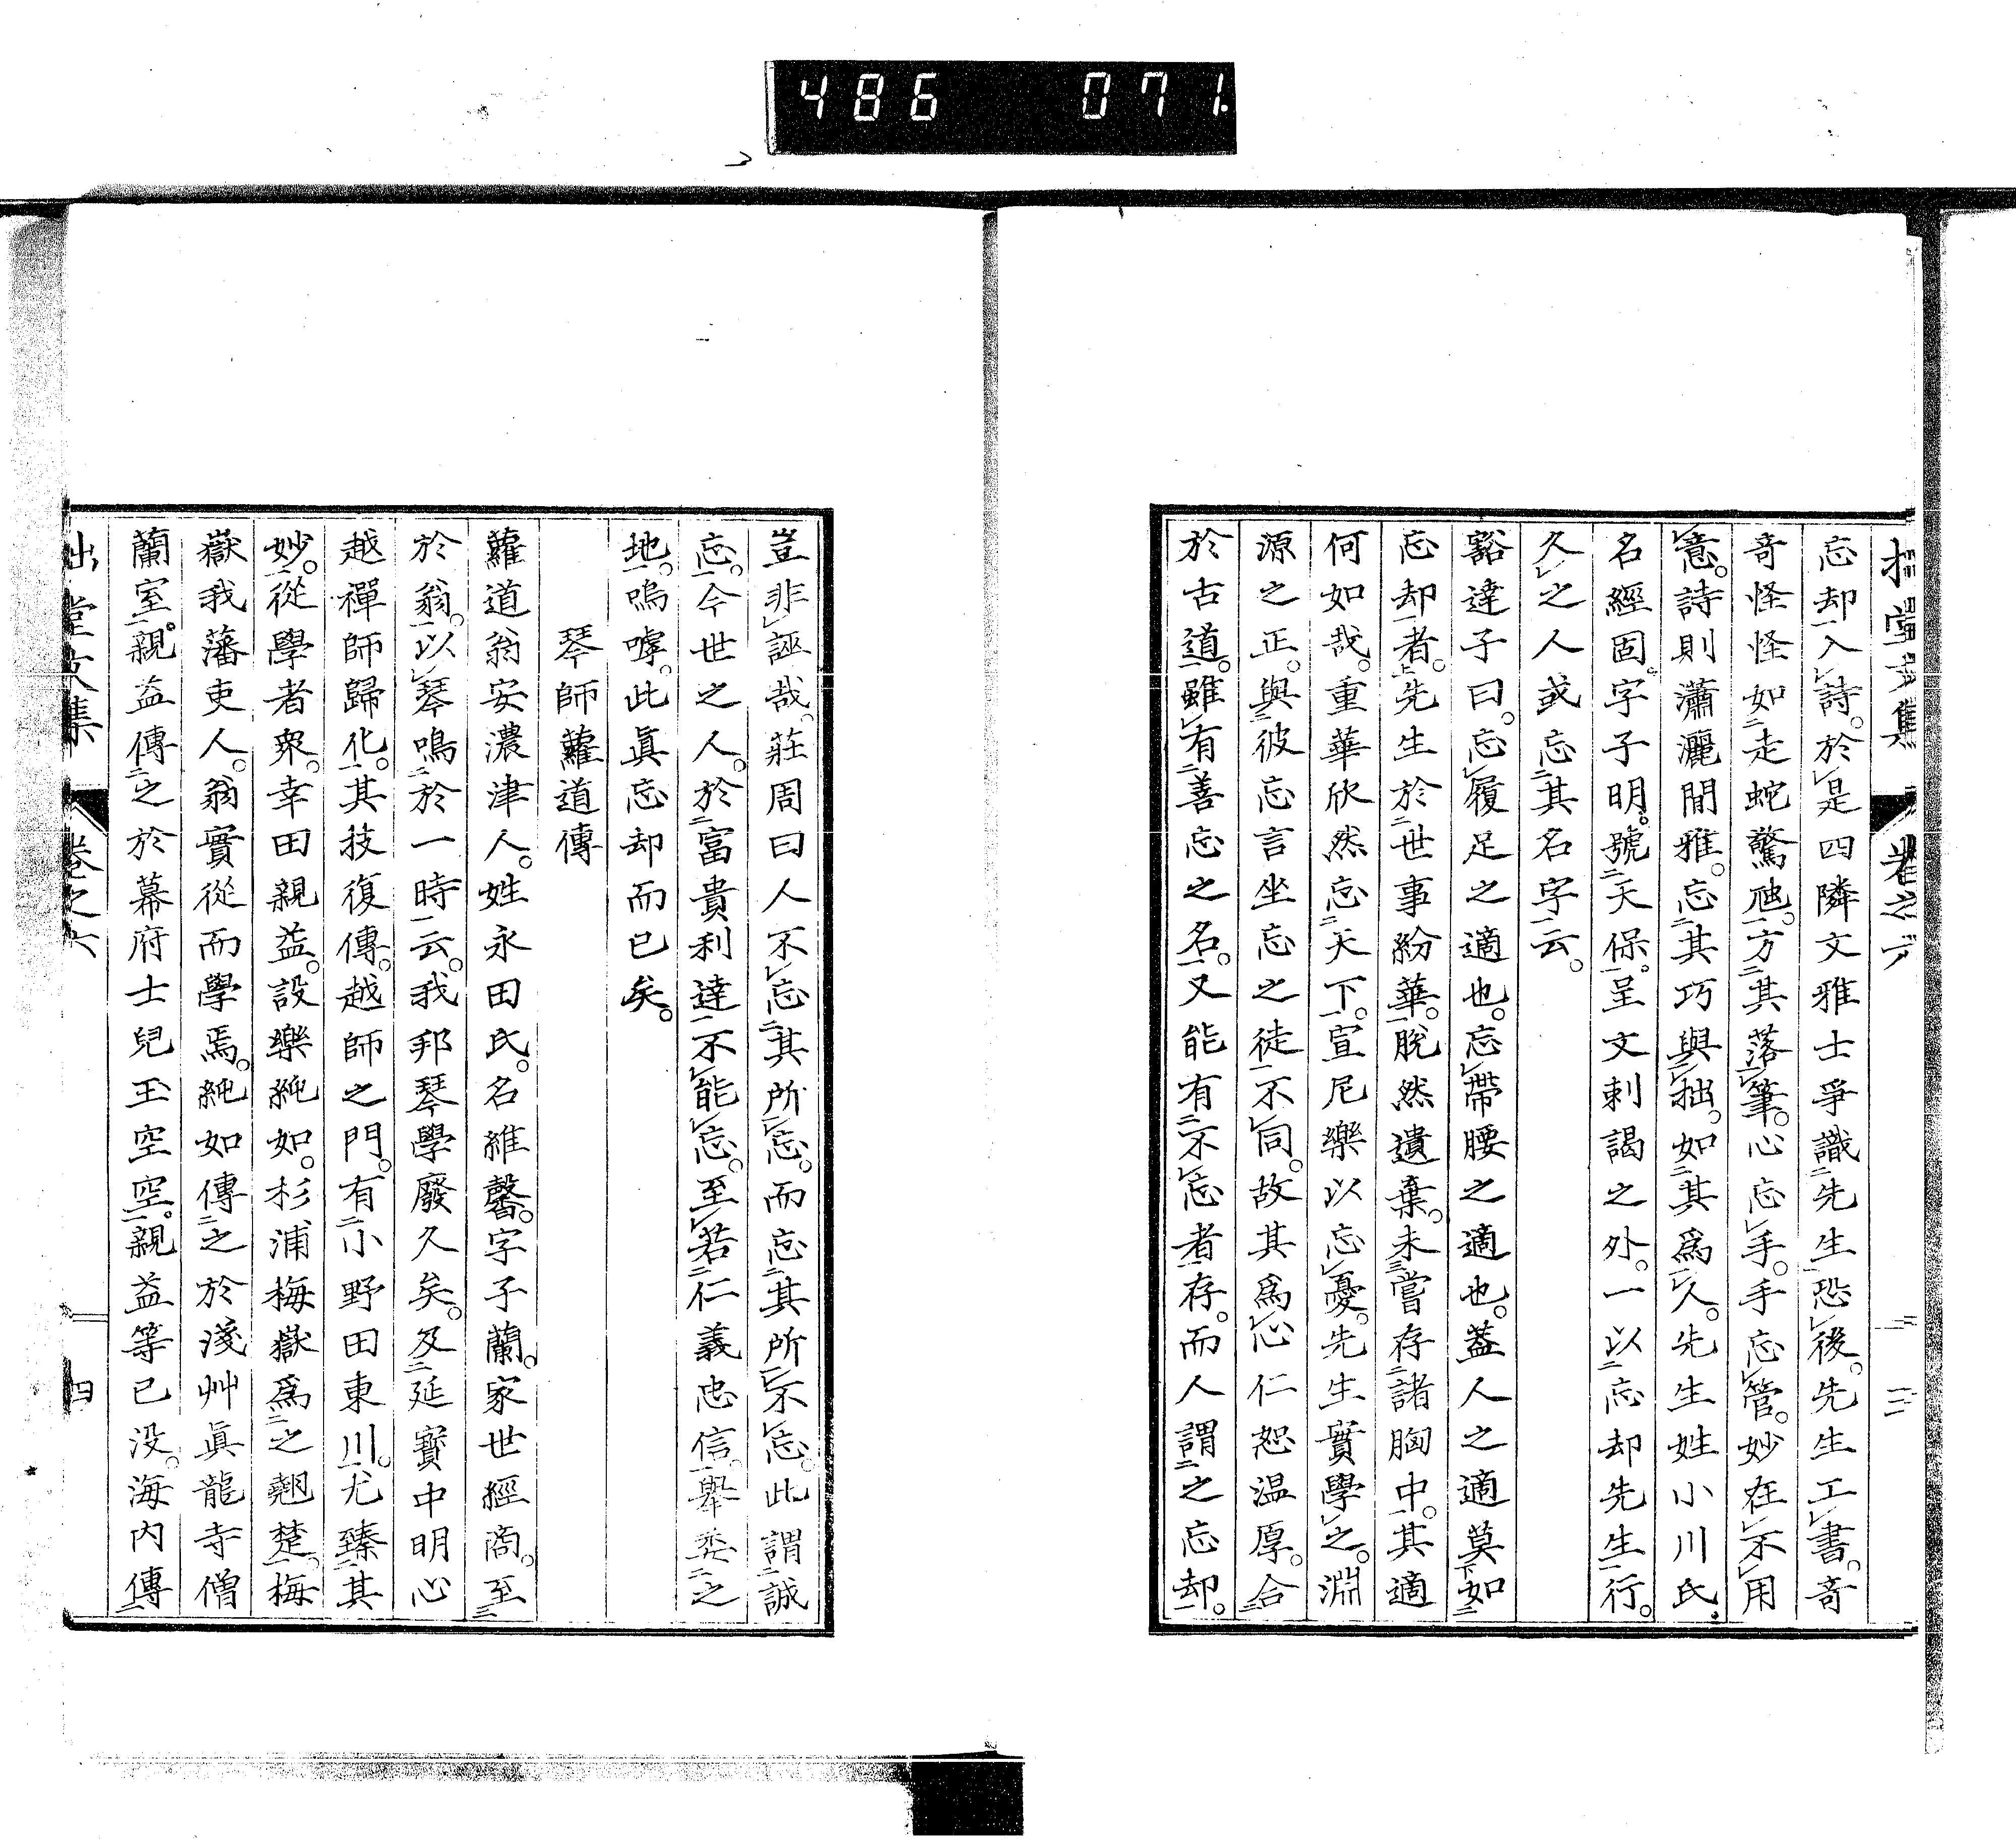 486 071
拙堂文集 卷之六
忘却入詩。於是四隣文雅士爭識先生恐後。先生工書。奇
奇怪怪如走蛇驚虺。方其落筆。心忘手。手忘管。妙在不用
意。詩則瀟灑閒雅。忘其巧與拙。如其爲人。先生姓小川氏。
名經固。字子明。號天保。呈文刺謁之外。一以忘却先生行。
久之人或忘其名字云。
豁達子曰。忘履足之適也。忘帶腰之適也。葢人之適莫如
忘却者。先生於世事紛華。脫然遺棄。未嘗存諸胸中。其適
何如哉。重華欣然忘天下。宣尼樂以忘憂。先生實學之。淵
源之正。與彼忘言坐忘之徒不同。故其爲心仁恕温厚。合
於古道。雖有善忘之名。又能有不忘者存。而人謂之忘却。
豈非誣哉。莊周曰人不忘其所忘。而忘其所不忘。此謂誠
忘。今世之人。於富貴利達不能忘。至若仁義忠信。舉委之
地。嗚呼。此眞忘却而已矣。
琴師蘿道傳
蘿道翁安濃津人。姓永田氏。名維馨。字子蘭。家世經商。至
於翁。以琴鳴於一時云。我邦琴學廢久矣。及延寶中明心
越禪師歸化。其技復傳。越師之門。有小野田東川。尤臻其
妙。從學者衆。幸田親益。設樂純如。杉浦梅嶽爲之翹楚。梅
嶽我藩吏人。翁實從而學焉。純如傳之於淺艸眞龍寺僧
蘭室。親益傳之於幕府士兒玉空空。親益等已没。海内傳
拙堂文集 卷之六 四